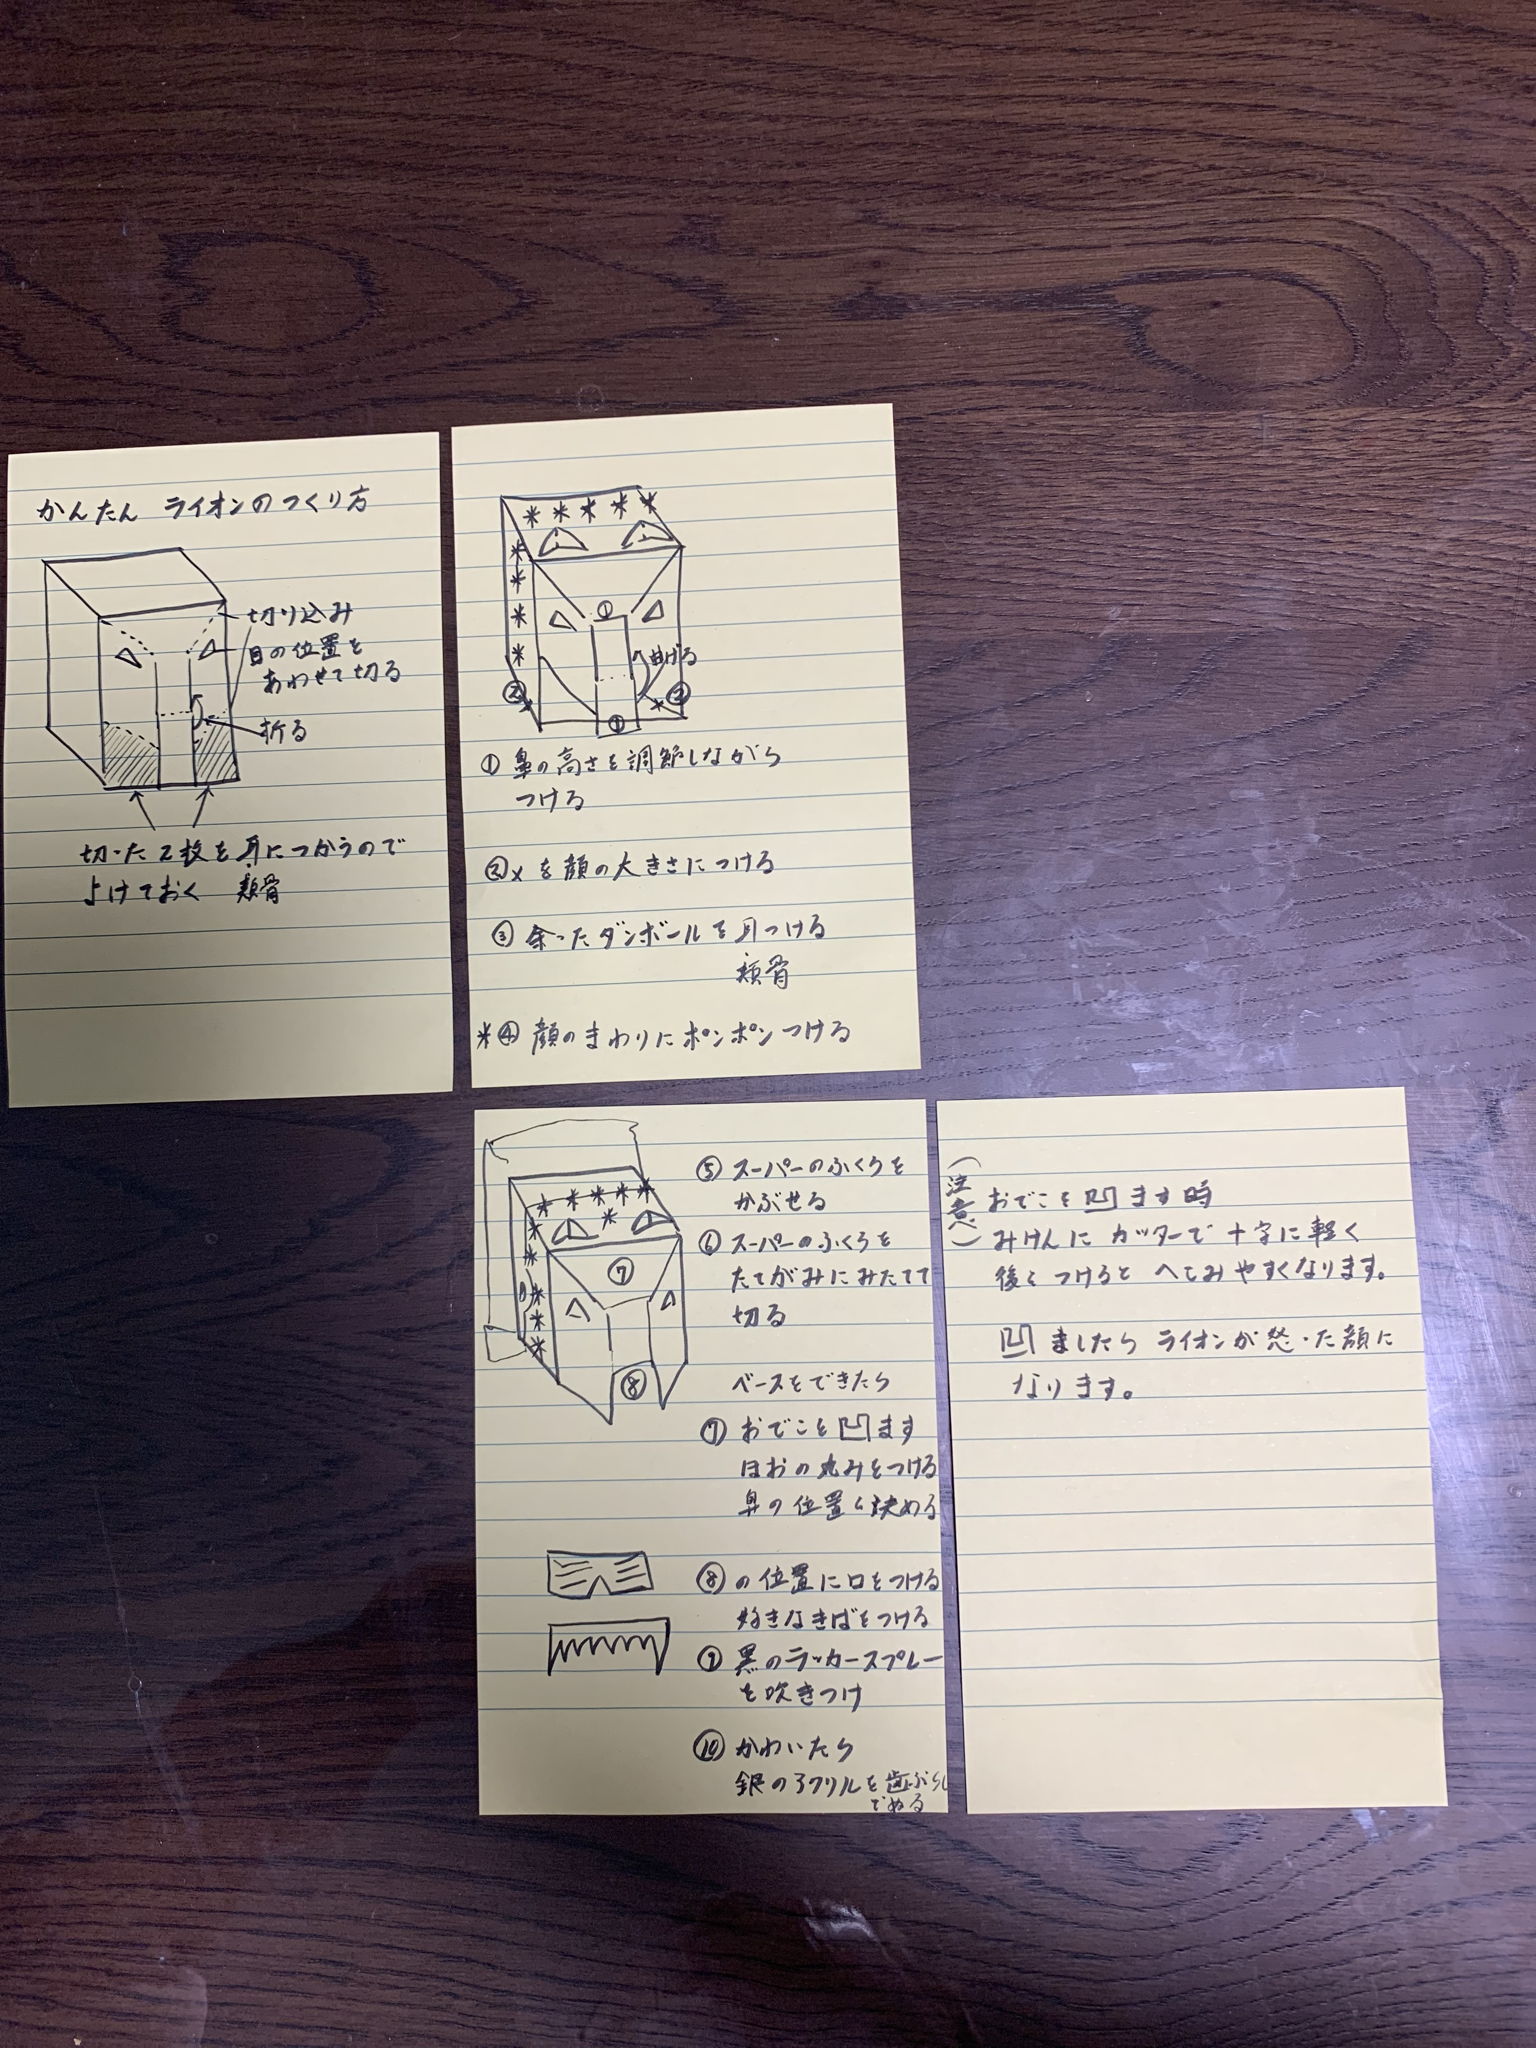 かんたん ライオンのつくり方
切り込み
目の位置を
あわせて切る
折る
切った2枚を耳につかうので
よけておく 頬骨
①
曲げる
②
②
①
① 鼻の高さを調節しながら
つける
②×を顔の大きさにつける
③ 余ったダンボールを耳つける
頬骨
*④ 顔のまわりにポンポンつける
⑦
⑧
⑤ スーパーのふくろを
かぶせる
⑥ スーパーのふくろを
たてがみにみたてて
切る
ベースをできたら
⑦ おでこを凹ます
ほおの丸みをつける
鼻の位置を決める
⑧の位置に口をつける
好きなきばをつける
⑨ 黒のラッカースプレー
を吹きつけ
⑩ かわいたら
銀のアクリルを歯ぶらし
でぬる
(注意)
おでこを凹ます時
みけんにカッターで十字に軽く
つけると へこみやすくなります。
凹ましたら ライオンが怒った顔に
なります。